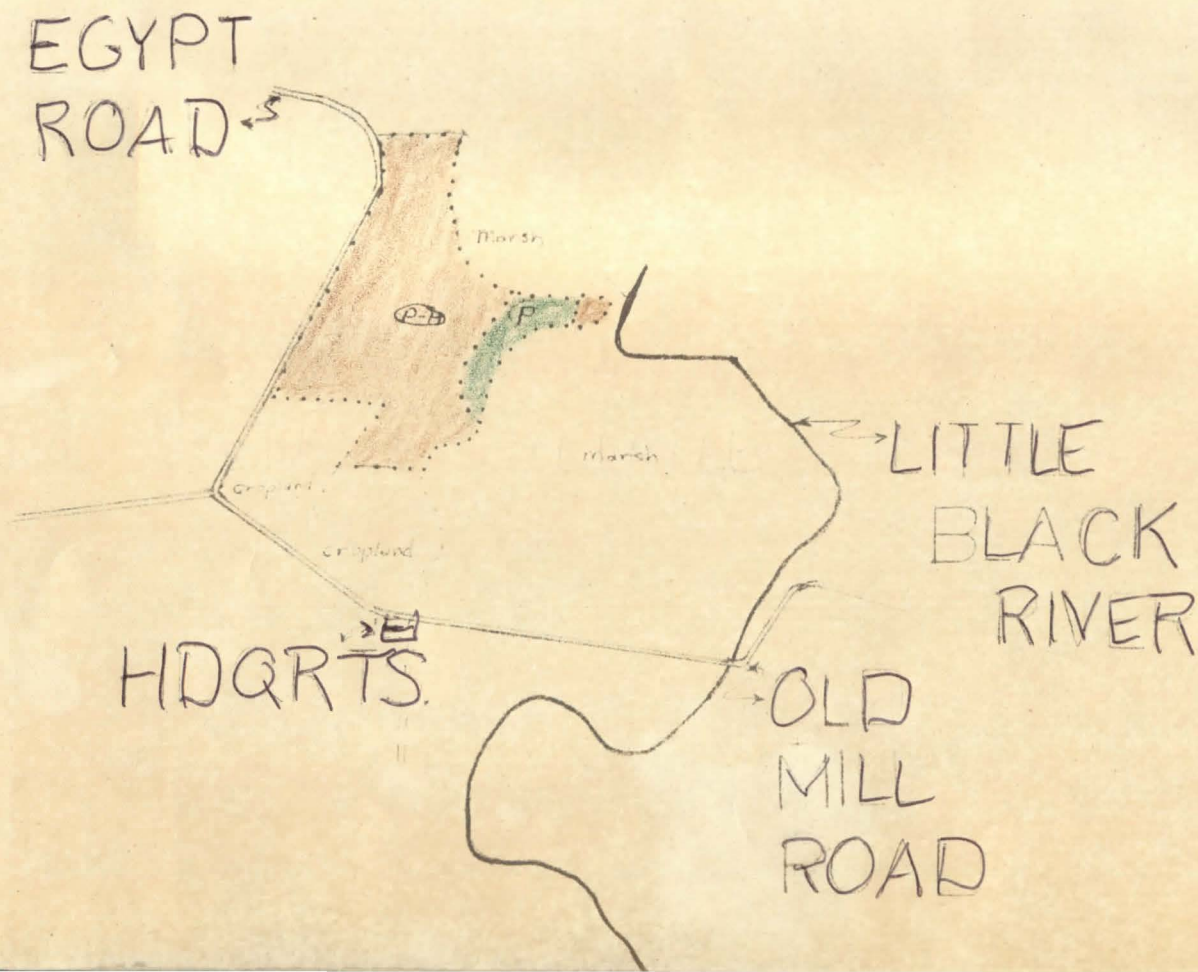 EGYPT
ROAD
Marsh
P-H
P
LITTLE
BLACK
RIVER
Marsh
cropland
cropland
HDQRTS.
OLD
MILL
ROAD